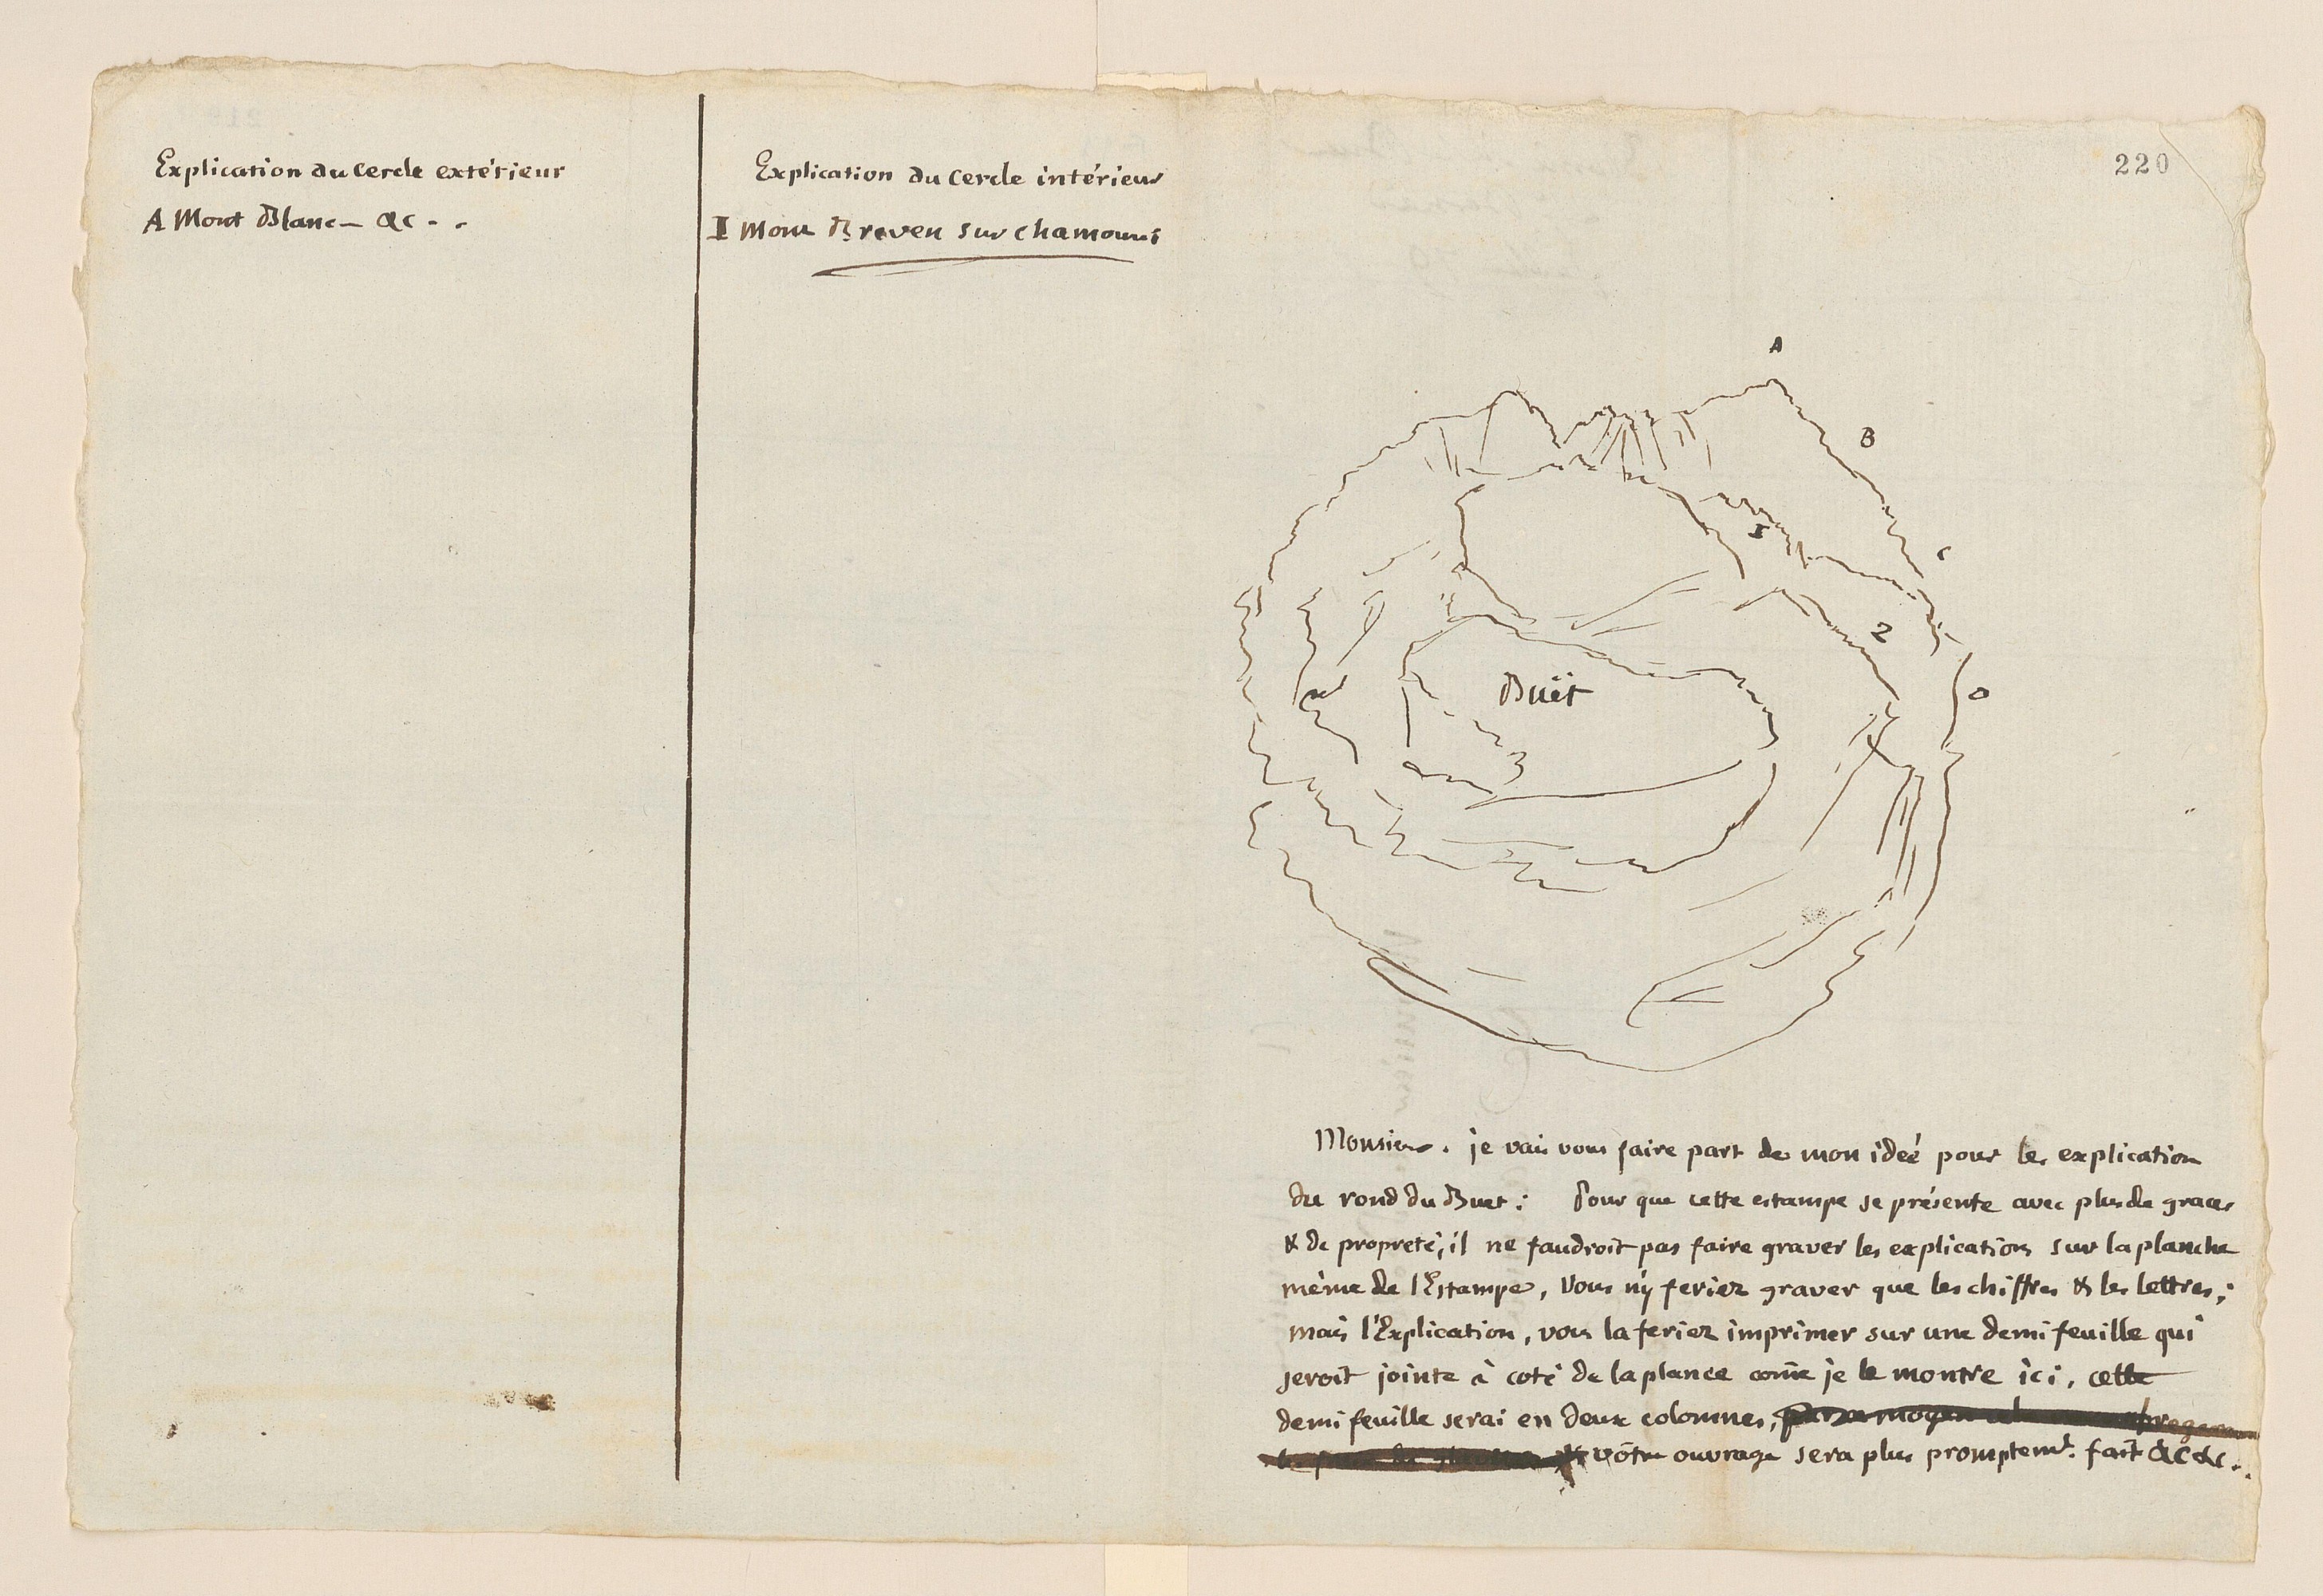 Explication du Cercle extérieur
A Mont Blanc - &c - -
Explication du Cercle intérieur
I Mont Breven sur chamouni
220
A
B
C
D
1
2
3
Buët
Monsieur. je vais vous faire part de mon ideé pour les explication
du rond du Buet : Pour que cette estampe se présente avec plus de graces
& de propreté, il ne faudroit pas faire graver les explications sur la planche
même de l'Estampe, Vous n'y feriez graver que les chiffres & les lettres,
mais l'Explication, vous la feriez imprimer sur une demi feuille qui
seroit jointe à coté de la plance come je le montre ici, cette
demi feuille serai en deux colomnes,
vôtre ouvrage sera plus promptemt. fait &c &c..